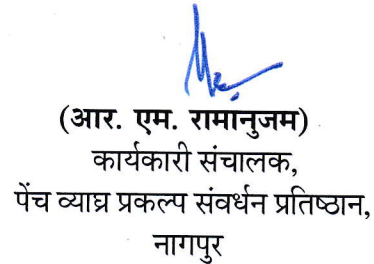 (आर. एम. रामानुजम)
कार्यकारी संचालक,
पेंच व्याघ्र प्रकल्प संवर्धन प्रतिष्ठान,
नागपुर